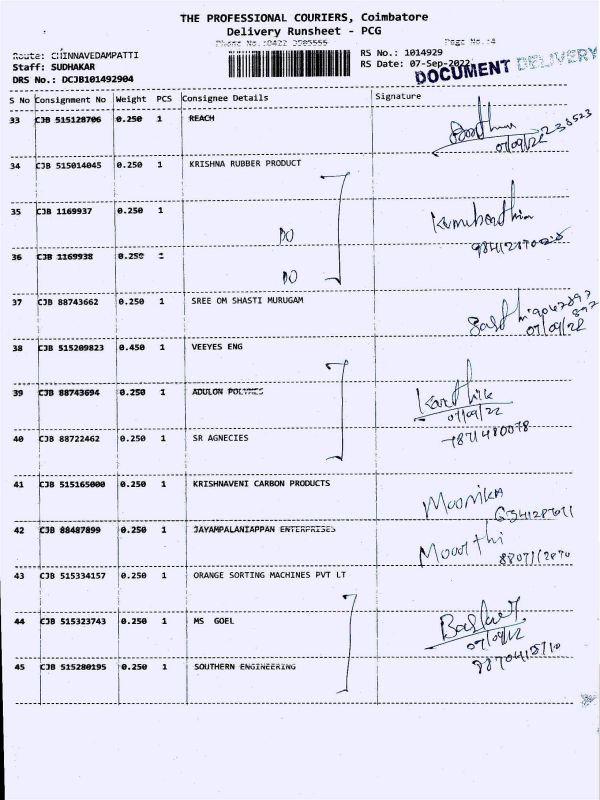 THE PROFESSIONAL COURIERS, Coimbatore
Delivery Runsheet - PCG
Phone No.:0422 3585555 Page No.:4
Route: CHINNAVEDAMPATTI RS No.: 1014929
Staff: SUDHAKAR RS Date: 07-Sep-2022
DRS No.: DCJB101492904 DOCUMENT DELIVERY
S No Consignment No Weight PCS Consignee Details Signature
33 CJB 515128706 0.250 1 REACH
07/09/22
34 CJB 515014045 0.250 1 KRISHNA RUBBER PRODUCT
35 CJB 1169937 0.250 1
DO
36 CJB 1169938 0.250
DO
37 CJB 88743662 0.250 1 SREE OM SHASTI MURUGAM
07/09/22
38 CJB 515209823 0.450 1 VEEYES ENG
39 CJB 88743694 0.250 1 ADULON POLYMES
Karthik
07/09/22
40 CJB 88722462 0.250 1 SR AGNECIES
7871480078
41 CJB 515165000 0.250 1 KRISHNAVENI CARBON PRODUCTS
Mounika
42 CJB 88487899 0.250 1 JAYAMPALANIAPPAN ENTERPRISES
Moorthi
43 CJB 515334157 0.250 1 ORANGE SORTING MACHINES PVT LT
44 CJB 515323743 0.250 1 MS GOEL
07/09/22
45 CJB 515280195 0.250 1 SOUTHERN ENGINEERING